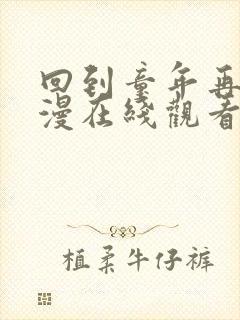 回到童年再
漫在綫觀看
植柔牛仔裤